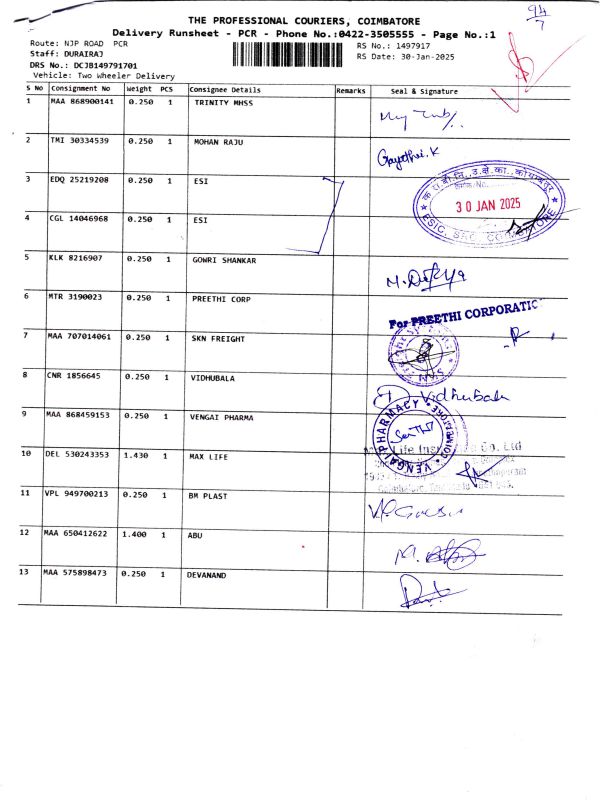 THE PROFESSIONAL COURIERS, COIMBATORE
Delivery Runsheet - PCR - Phone No.:0422-3505555 - Page No.:1
94/7
Route: NJP ROAD PCR
Staff: DURAIRAJ
DRS No.: DCJB149791701
Vehicle: Two Wheeler Delivery
RS No.: 1497917
RS Date: 30-Jan-2025
S No Consignment No Weight PCS Consignee Details Remarks Seal & Signature
1 MAA 868900141 0.250 1 TRINITY MHSS
2 TMI 30334539 0.250 1 MOHAN RAJU Gayathri.K
3 EDQ 25219208 0.250 1 ESI
30 JAN 2025
4 CGL 14046968 0.250 1 ESI
ESIC, SRO, COIMBATORE
5 KLK 8216907 0.250 1 GOWRI SHANKAR
6 MTR 3190023 0.250 1 PREETHI CORP For PREETHI CORPORATIO
7 MAA 707014061 0.250 1 SKN FREIGHT
8 CNR 1856645 0.250 1 VIDHUBALA Vidhubala
9 MAA 868459153 0.250 1 VENGAI PHARMA VENGAI PHARMACY COIMBATORE
10 DEL 530243353 1.430 1 MAX LIFE Life Co. Ltd
11 VPL 949700213 0.250 1 BM PLAST
12 MAA 650412622 1.400 1 ABU
13 MAA 575898473 0.250 1 DEVANAND